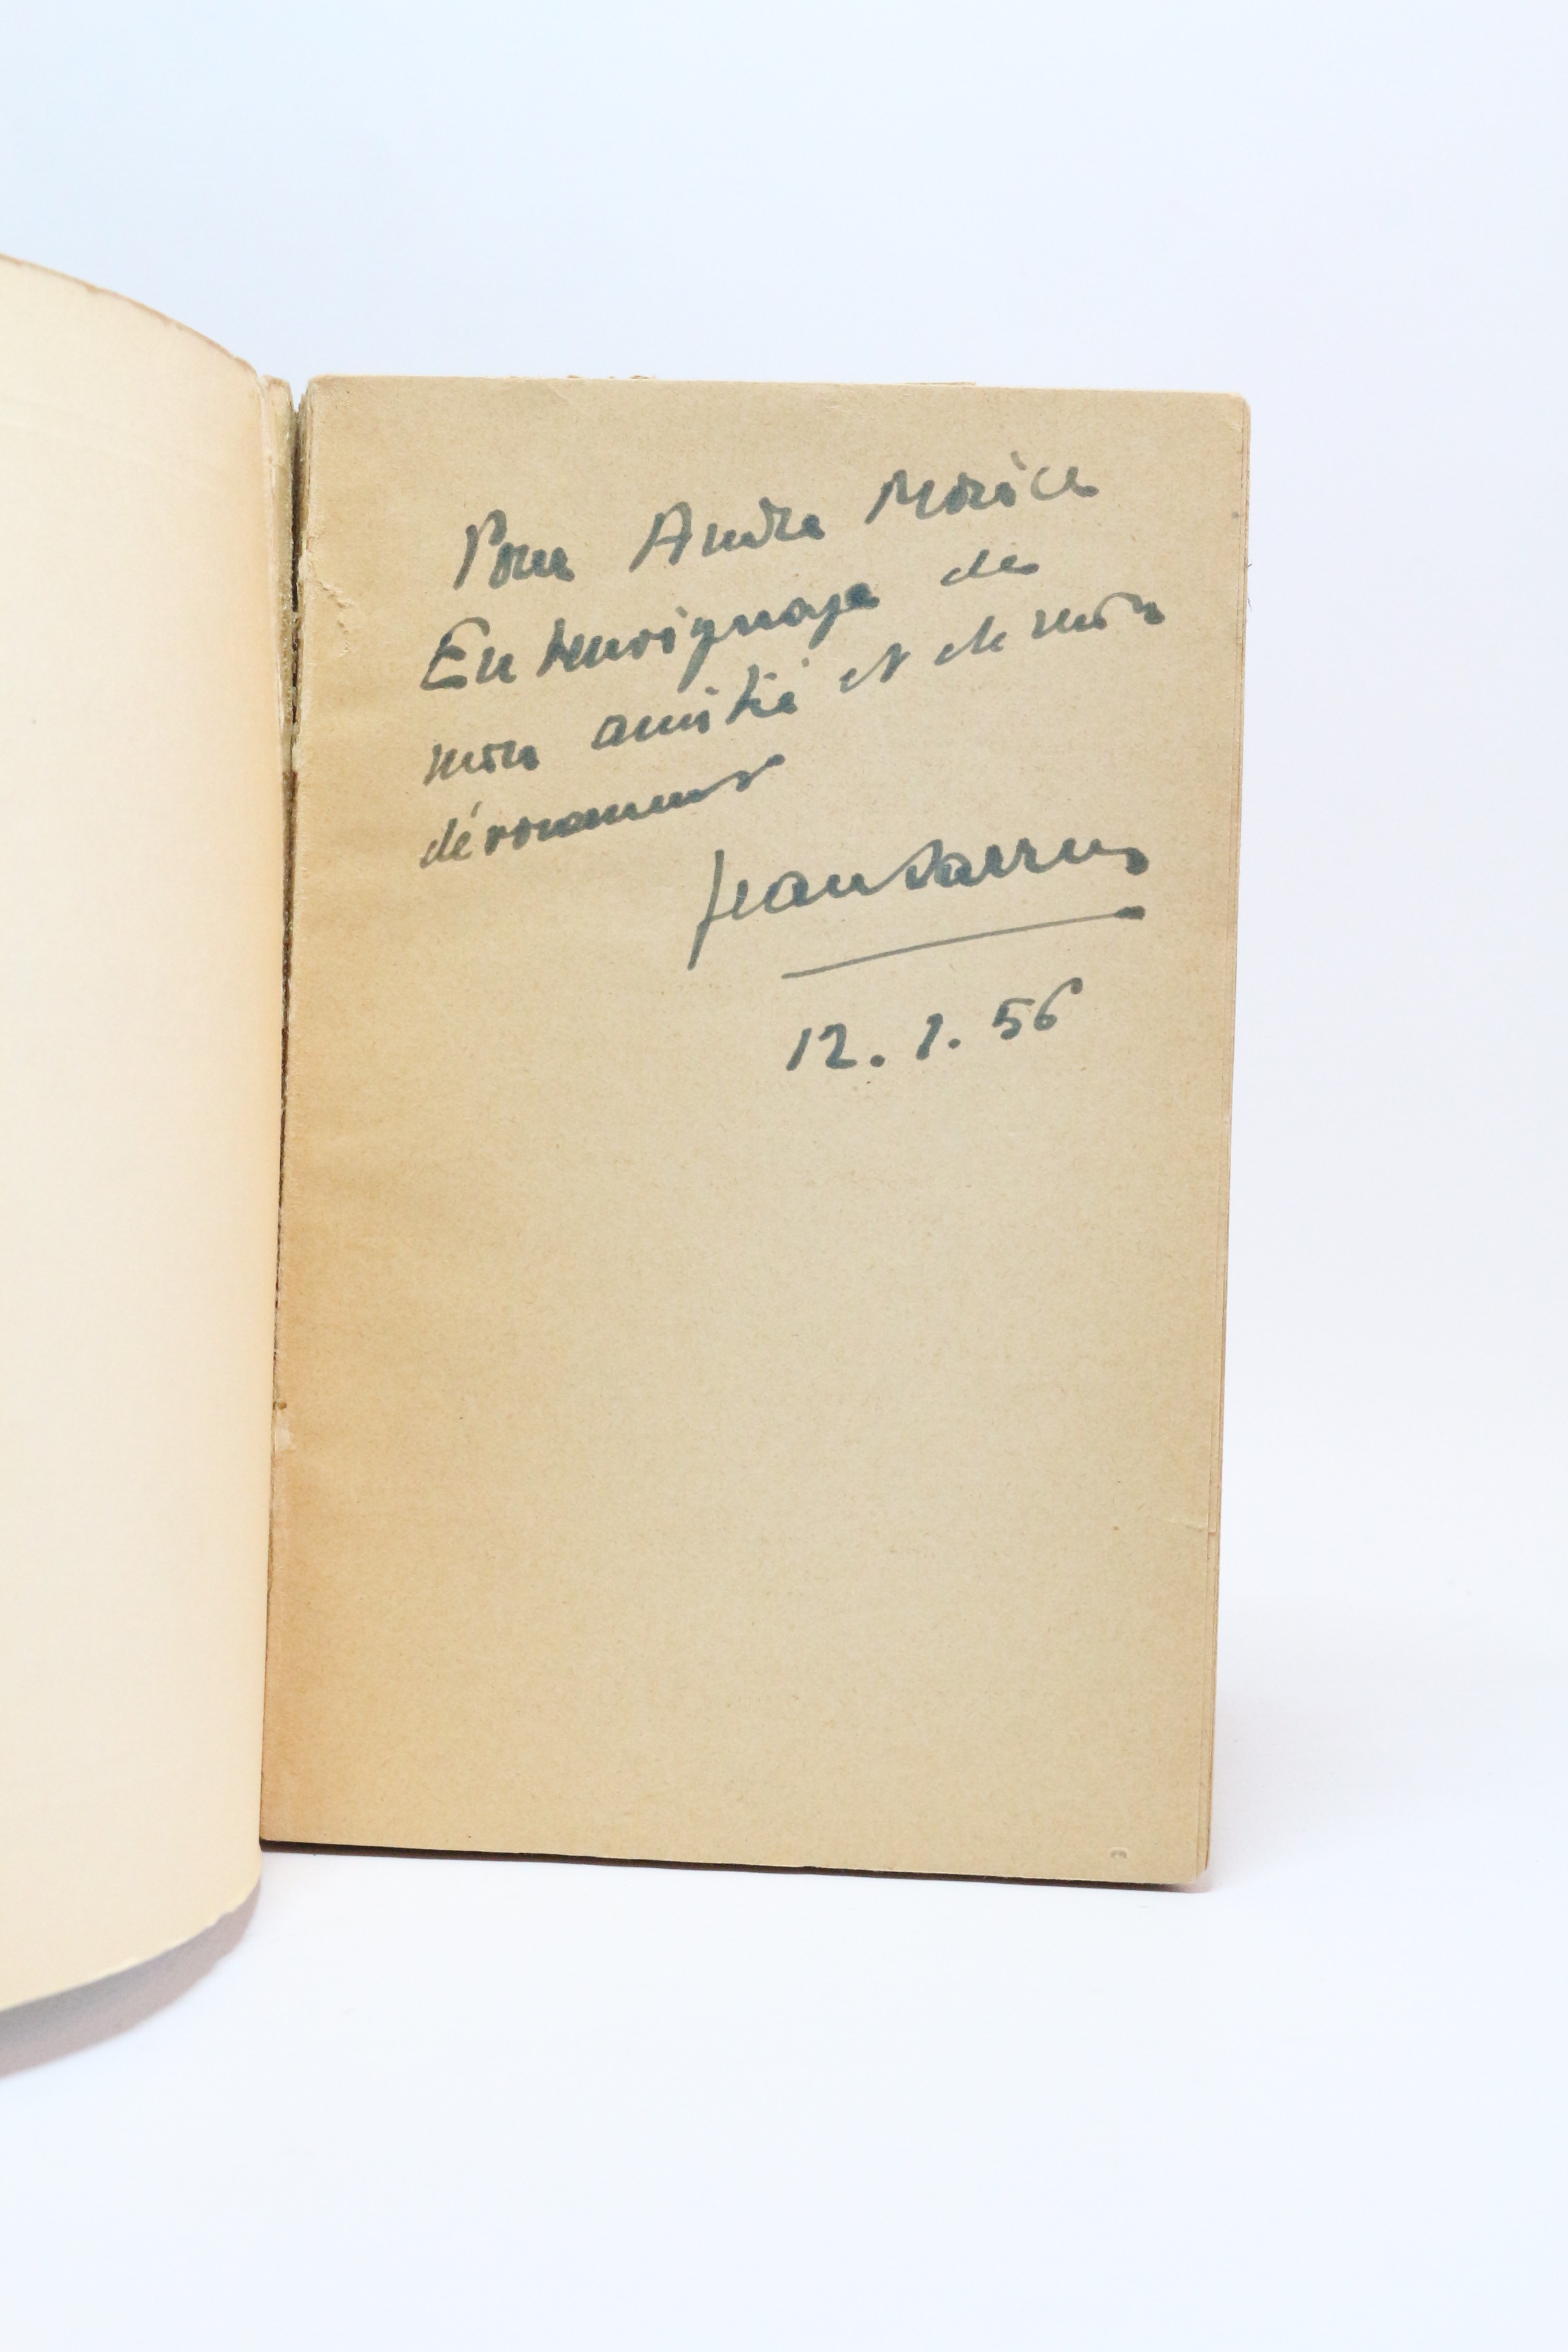 Pour André Morice
En témoignage de
mon amitié et de mon
dévouement
Jean Sarrus
12. 1. 56